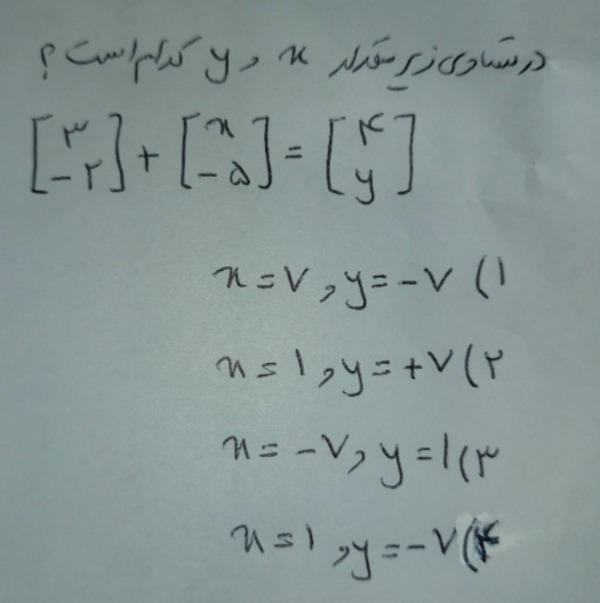 در تساوی زیر مقدار x و y کدام است؟
[۳ -۲] + [x -۵] = [۴ y]
x = ۷ و y = -۷ (۱
x = ۱ و y = +۷ (۲
x = -۷ و y = ۱ (۳
x = ۱ و y = -۷ (۴